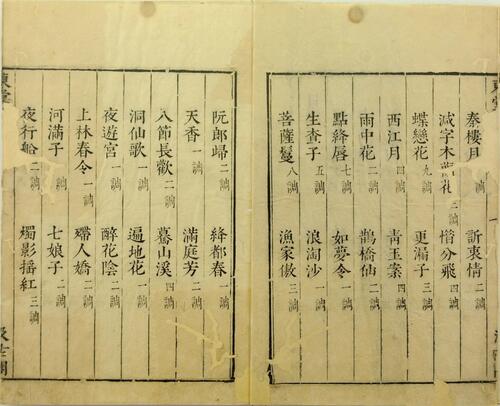 東堂
秦樓月 二調 訴衷情 二調
減字木蘭花 三調 惜分飛 四調
蝶戀花 九調 更漏子 三調
西江月 四調 青玉案 四調
雨中花 二調 鵲橋仙 二調
點絳唇 七調 如夢令 一調
生查子 五調 浪淘沙 一調
菩薩蠻 八調 漁家傲 三調
阮郎歸 二調 絳都春 一調
天香 一調 滿庭芳 二調
八節長歡 二調 驀山溪 四調
洞仙歌 一調 遍地花 一調
夜遊宮 一調 醉花陰 二調
上林春令 一調 殢人嬌 二調
河滿子 二調 七娘子 二調
夜行船 二調 燭影搖紅 三調
東堂
汲古閣